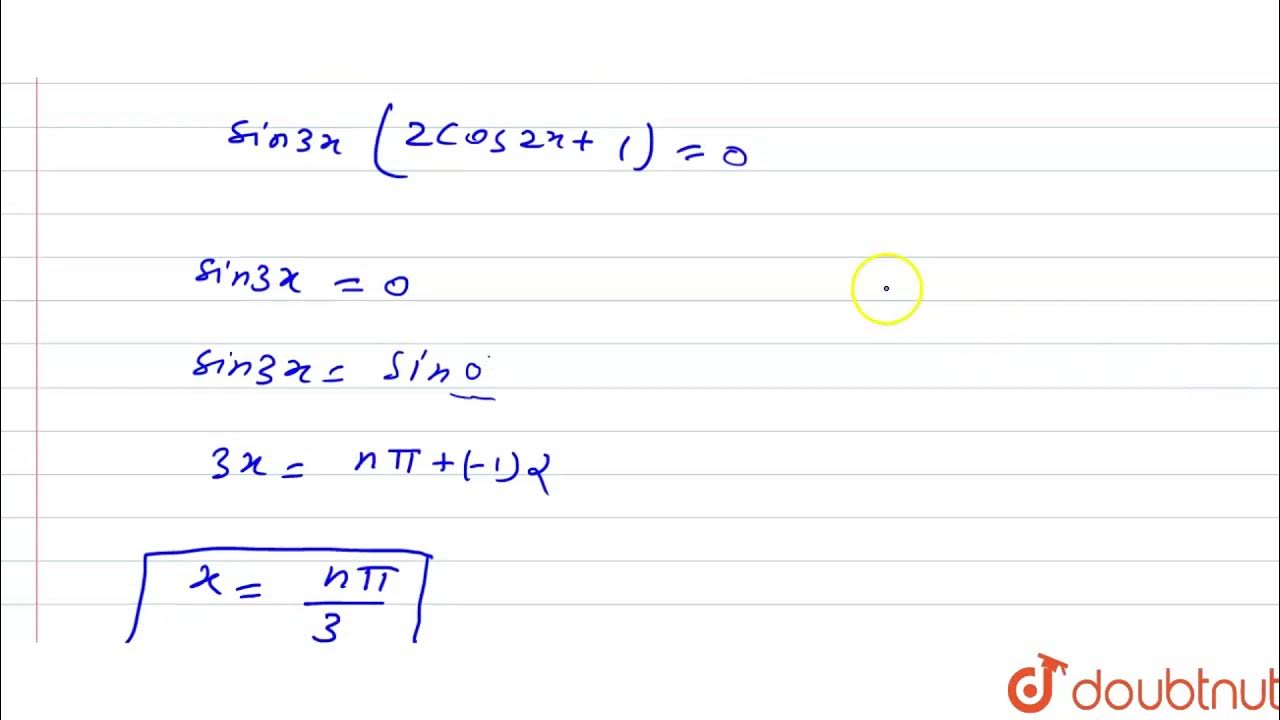 sin3x (2cos2x + 1) = 0
sin3x = 0
sin3x = sin0
3x = nπ + (-1)α
x = nπ/3
doubtnut